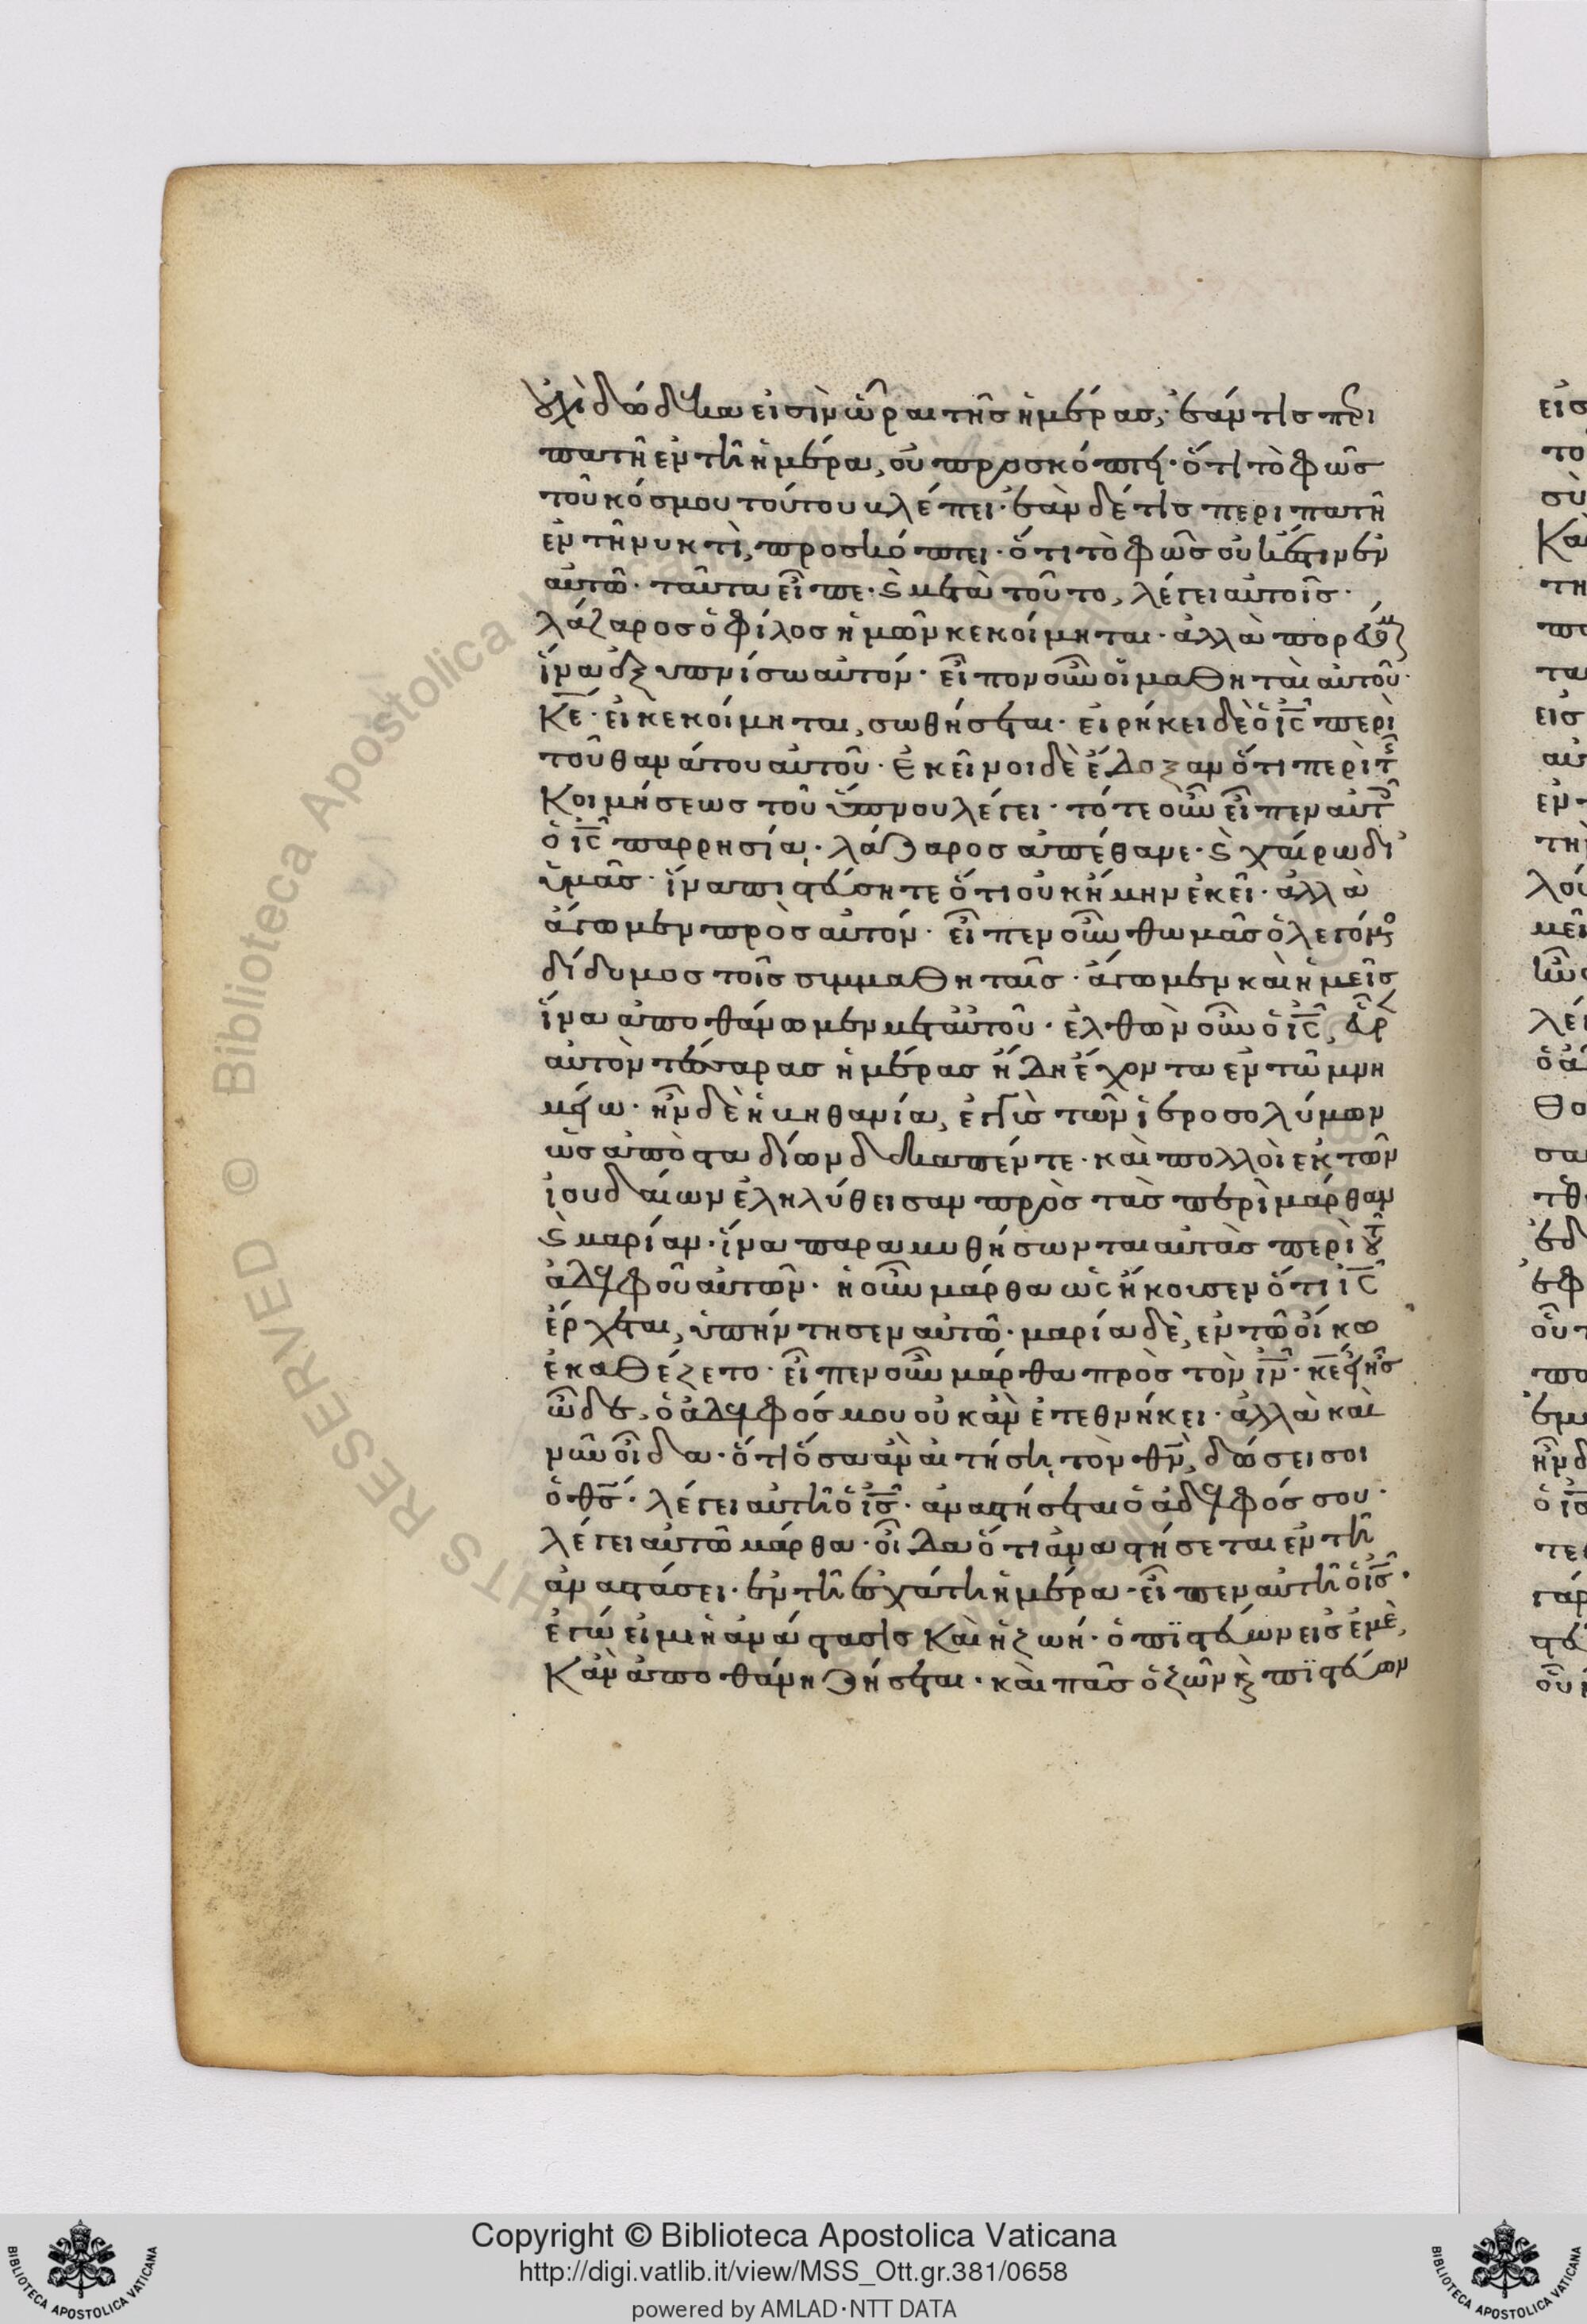 οὐχὶ δώδεκα εἰσὶν ὧραι τῆς ἡμέρας, ἐάν τις περι
πατῆ ἐν τῆ ἡμέρα, οὐ προσκόπτει· ὅτι τὸ φῶς
τοῦ κόσμου τούτου βλέπει· ἐὰν δέ τις περιπατῆ
ἐν τῆ νυκτὶ, προσκόπτει· ὅτι τὸ φῶς οὐκ ἔστιν ἐν
αὐτῶ· ταῦτα εἶπε· ϗ μετὰ τοῦτο, λέγει αὐτοῖς·
λάζαρος ὁ φίλος ἡμῶν κεκοίμηται· ἀλλὰ πορεύομαι
ἵνα ἐξυπνίσω αὐτόν· εἶπον οὖν οἱ μαθηταὶ αὐτοῦ·
κε̅· εἰ κεκοίμηται, σωθήσεται· εἰρήκει δὲ ὁ ις̅ περὶ
τοῦ θανάτου αὐτοῦ· ἐκεῖνοι δὲ ἔδοξαν ὅτι περὶ τῆς
κοιμήσεως τοῦ ὕπνου λέγει· τότε οὖν εἶπεν αὐτοῖς
ὁ ις̅ παρρησία· λάζαρος ἀπέθανε· ϗ χαίρω δι'
ὑμᾶς· ἵνα πιστεύσητε ὅτι οὐκ ἤμην ἐκεῖ· ἀλλὰ
ἄγωμεν πρὸς αὐτόν· εἶπεν οὖν θωμᾶς ὁ λεγόμενος
δίδυμος τοῖς συμμαθηταῖς· ἄγωμεν καὶ ἡμεῖς
ἵνα ἀποθάνωμεν μετ' αὐτοῦ· ἐλθὼν οὖν ὁ ις̅, εὗρεν
αὐτὸν τέσσαρας ἡμέρας ἤδη ἔχοντα ἐν τῶ μνη
μείω· ἦν δὲ ἡ βηθανία, ἐγγὺς τῶν ἱεροσολύμων
ὡς ἀπὸ σταδίων δεκαπέντε· καὶ πολλοὶ ἐκ τῶν
ἰουδαίων ἐληλύθεισαν πρὸς τὰς περὶ μάρθαν
ϗ μαρίαν· ἵνα παραμυθήσωνται αὐτὰς περὶ τοῦ
ἀδελφοῦ αὐτῶν· ἡ οὖν μάρθα ὡς ἤκουσεν ὅτι ις̅
ἔρχεται, ὑπήντησεν αὐτῶ· μαρία δὲ, ἐν τῶ οἴκω
ἐκαθέζετο· εἶπεν οὖν μάρθα πρὸς τὸν ιν̅· κε̅ εἰ ἦς
ὧδε, ὁ ἀδελφός μου οὐκ ἂν ἐτεθνήκει· ἀλλὰ καὶ
νῦν οἶδα· ὅτι ὅσα ἂν αἰτήση τὸν θν̅, δώσει σοι
ὁ θς̅· λέγει αὐτῆ ὁ ις̅· ἀναστήσεται ὁ ἀδελφός σου·
λέγει αὐτῶ μάρθα· οἶδα ὅτι ἀναστήσεται ἐν τῆ
ἀναστάσει· ἐν τῆ ἐσχάτη ἡμέρα· εἶπεν αὐτῆ ὁ ις̅·
ἐγώ εἰμι ἡ ἀνάστασις καὶ ἡ ζωή· ὁ πϊστεύων εἰς ἐμὲ,
κἂν ἀποθάνη ζήσεται· καὶ πᾶς ὁ ζῶν ϗ πϊστεύων
Copyright © Biblioteca Apostolica Vaticana
http://digi.vatlib.it/view/MSS_Ott.gr.381/0658
powered by AMLAD·NTT DATA